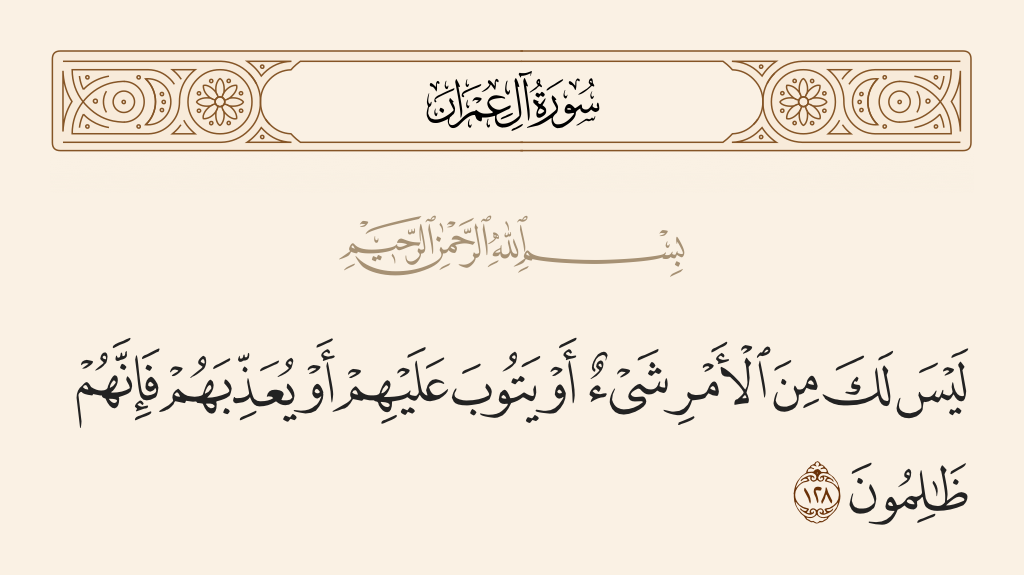 سُورَةُ آلِ عِمْرَان
بِسْمِ ٱللَّهِ ٱلرَّحْمَٰنِ ٱلرَّحِيمِ
لَيْسَ لَكَ مِنَ ٱلْأَمْرِ شَىْءٌ أَوْ يَتُوبَ عَلَيْهِمْ أَوْ يُعَذِّبَهُمْ فَإِنَّهُمْ
ظَٰلِمُونَ ١٢٨